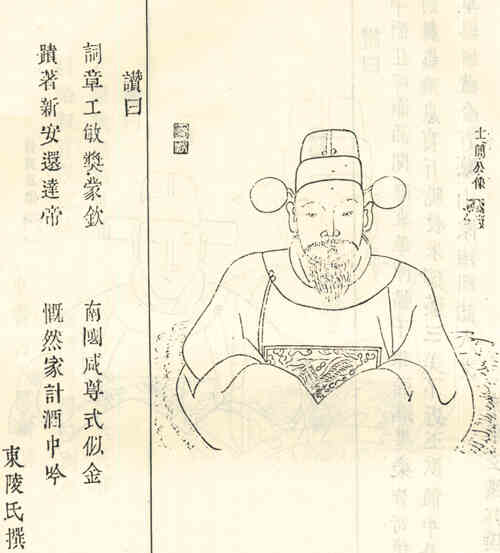 士公像
讚曰
詞章工敏獎蒙欽
南國咸尊式似金
蹟著新安還達帝
慨然家計酒中吟
東陵氏撰